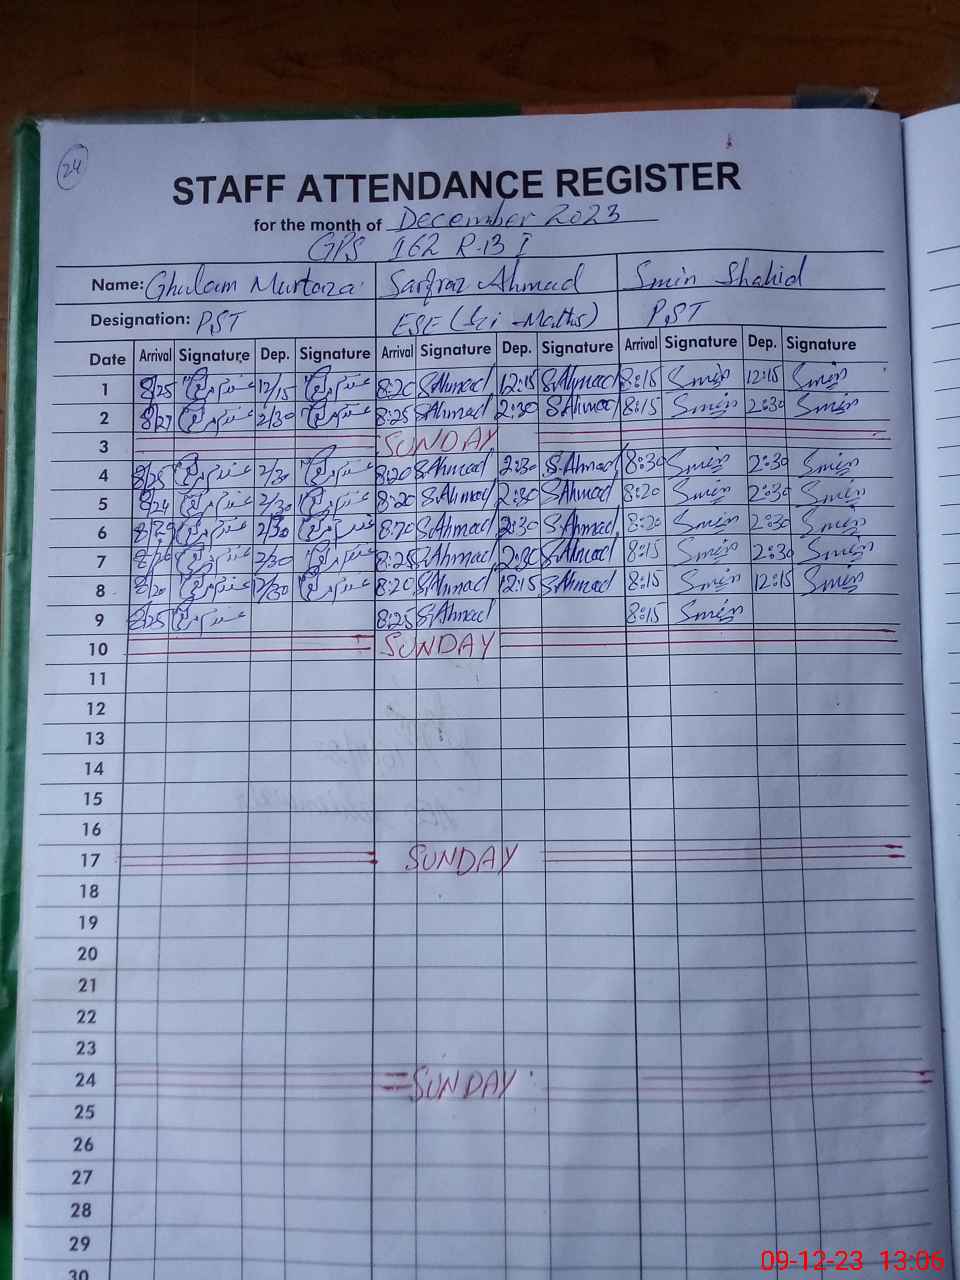 24
STAFF ATTENDANCE REGISTER
for the month of December 2023
GPS 162 R.B I
Name: Ghulam Murtaza Sarfraz Ahmad Smin Shahid
Designation: PST ESE (Sci-Maths) PST
Date Arrival Signature Dep. Signature Arrival Signature Dep. Signature Arrival Signature Dep. Signature
1 8/25 12/15 8:20 S.Ahmad 12:15 S.Ahmad 8:15 Smin 12:15 Smin
2 8/27 2/30 8:25 S.Ahmad 2:30 S.Ahmad 8:15 Smin 2:30 Smin
3 SUNDAY
4 8/25 2/30 8:20 S.Ahmad 2:30 S.Ahmad 8:30 Smin 2:30 Smin
5 8/24 2/30 8:20 S.Ahmad 2:30 S.Ahmad 8:20 Smin 2:30 Smin
6 2/30 8:20 S.Ahmad 2:30 S.Ahmad 8:20 Smin 2:30 Smin
7 2/30 8:25 S.Ahmad 2:30 S.Ahmad 8:15 Smin 2:30 Smin
8 8/20 12/30 8:20 S.Ahmad 12:15 S.Ahmad 8:15 Smin 12:15 Smin
9 8/25 8:25 S.Ahmad 8:15 Smin
10 SUNDAY
11
12
13
14
15
16
17 SUNDAY
18
19
20
21
22
23
24 =SUNDAY
25
26
27
28
29
30
09-12-23 13:06